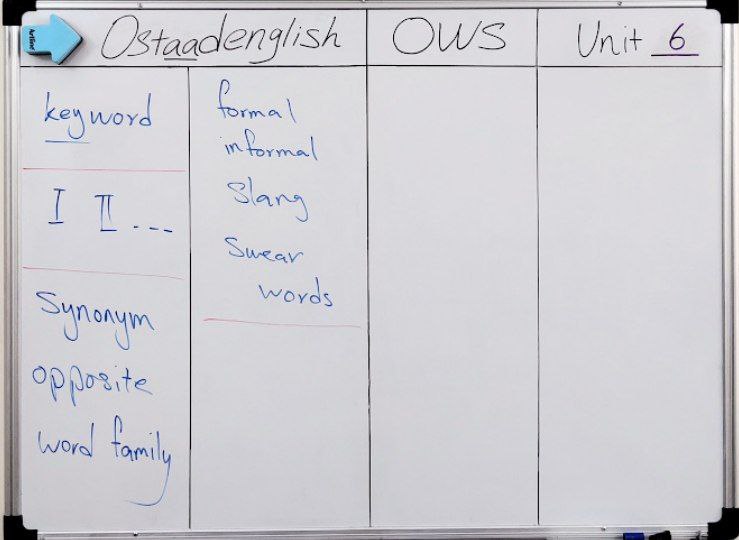 Ostaadenglish OWS Unit 6
keyword
I II ...
Synonym
opposite
word family
formal
informal
Slang
Swear
words